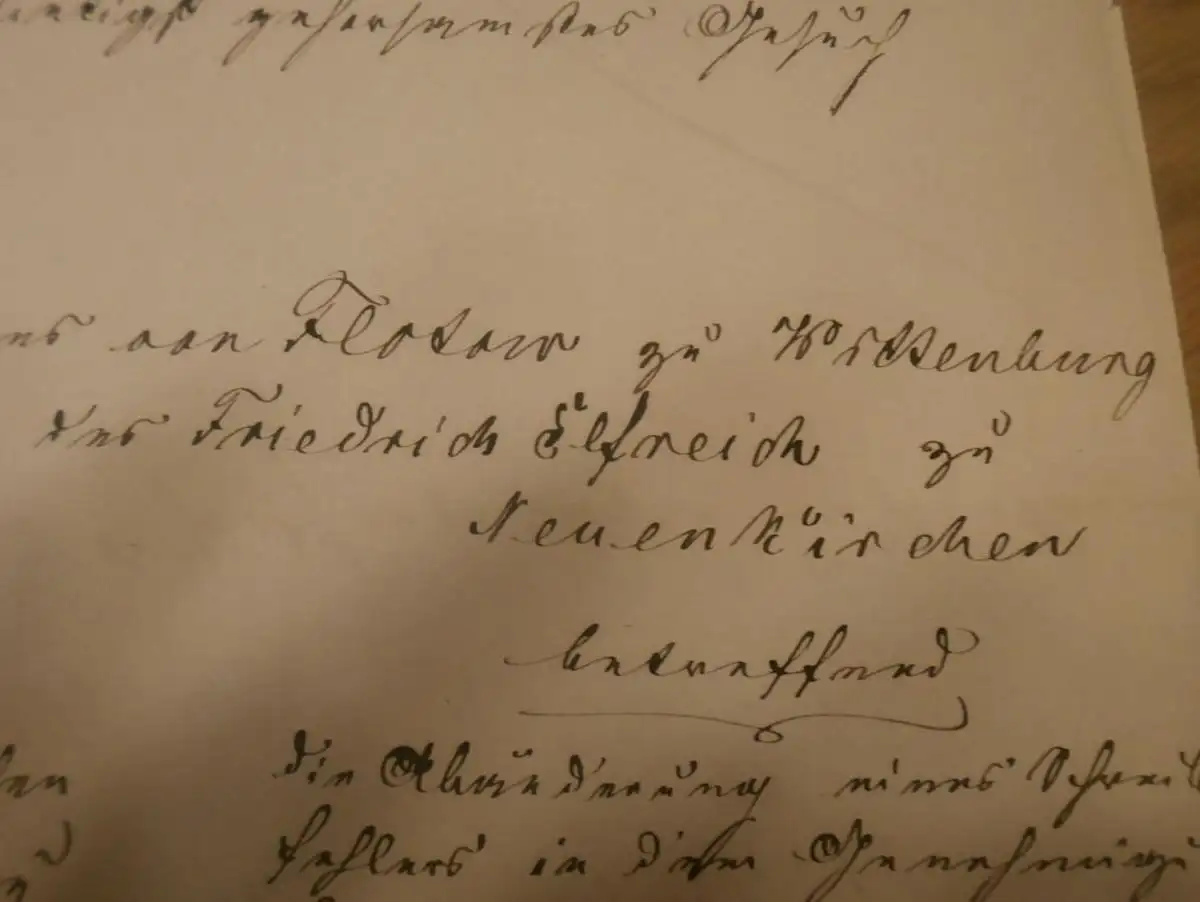 gehorsamstes Gesuch
von Flotow zu Wittenburg
des Friedrich Elfreich zu
Neuenkirchen
betreffend
die Abänderung eines Schreib
fehlers in dem Genehmigu